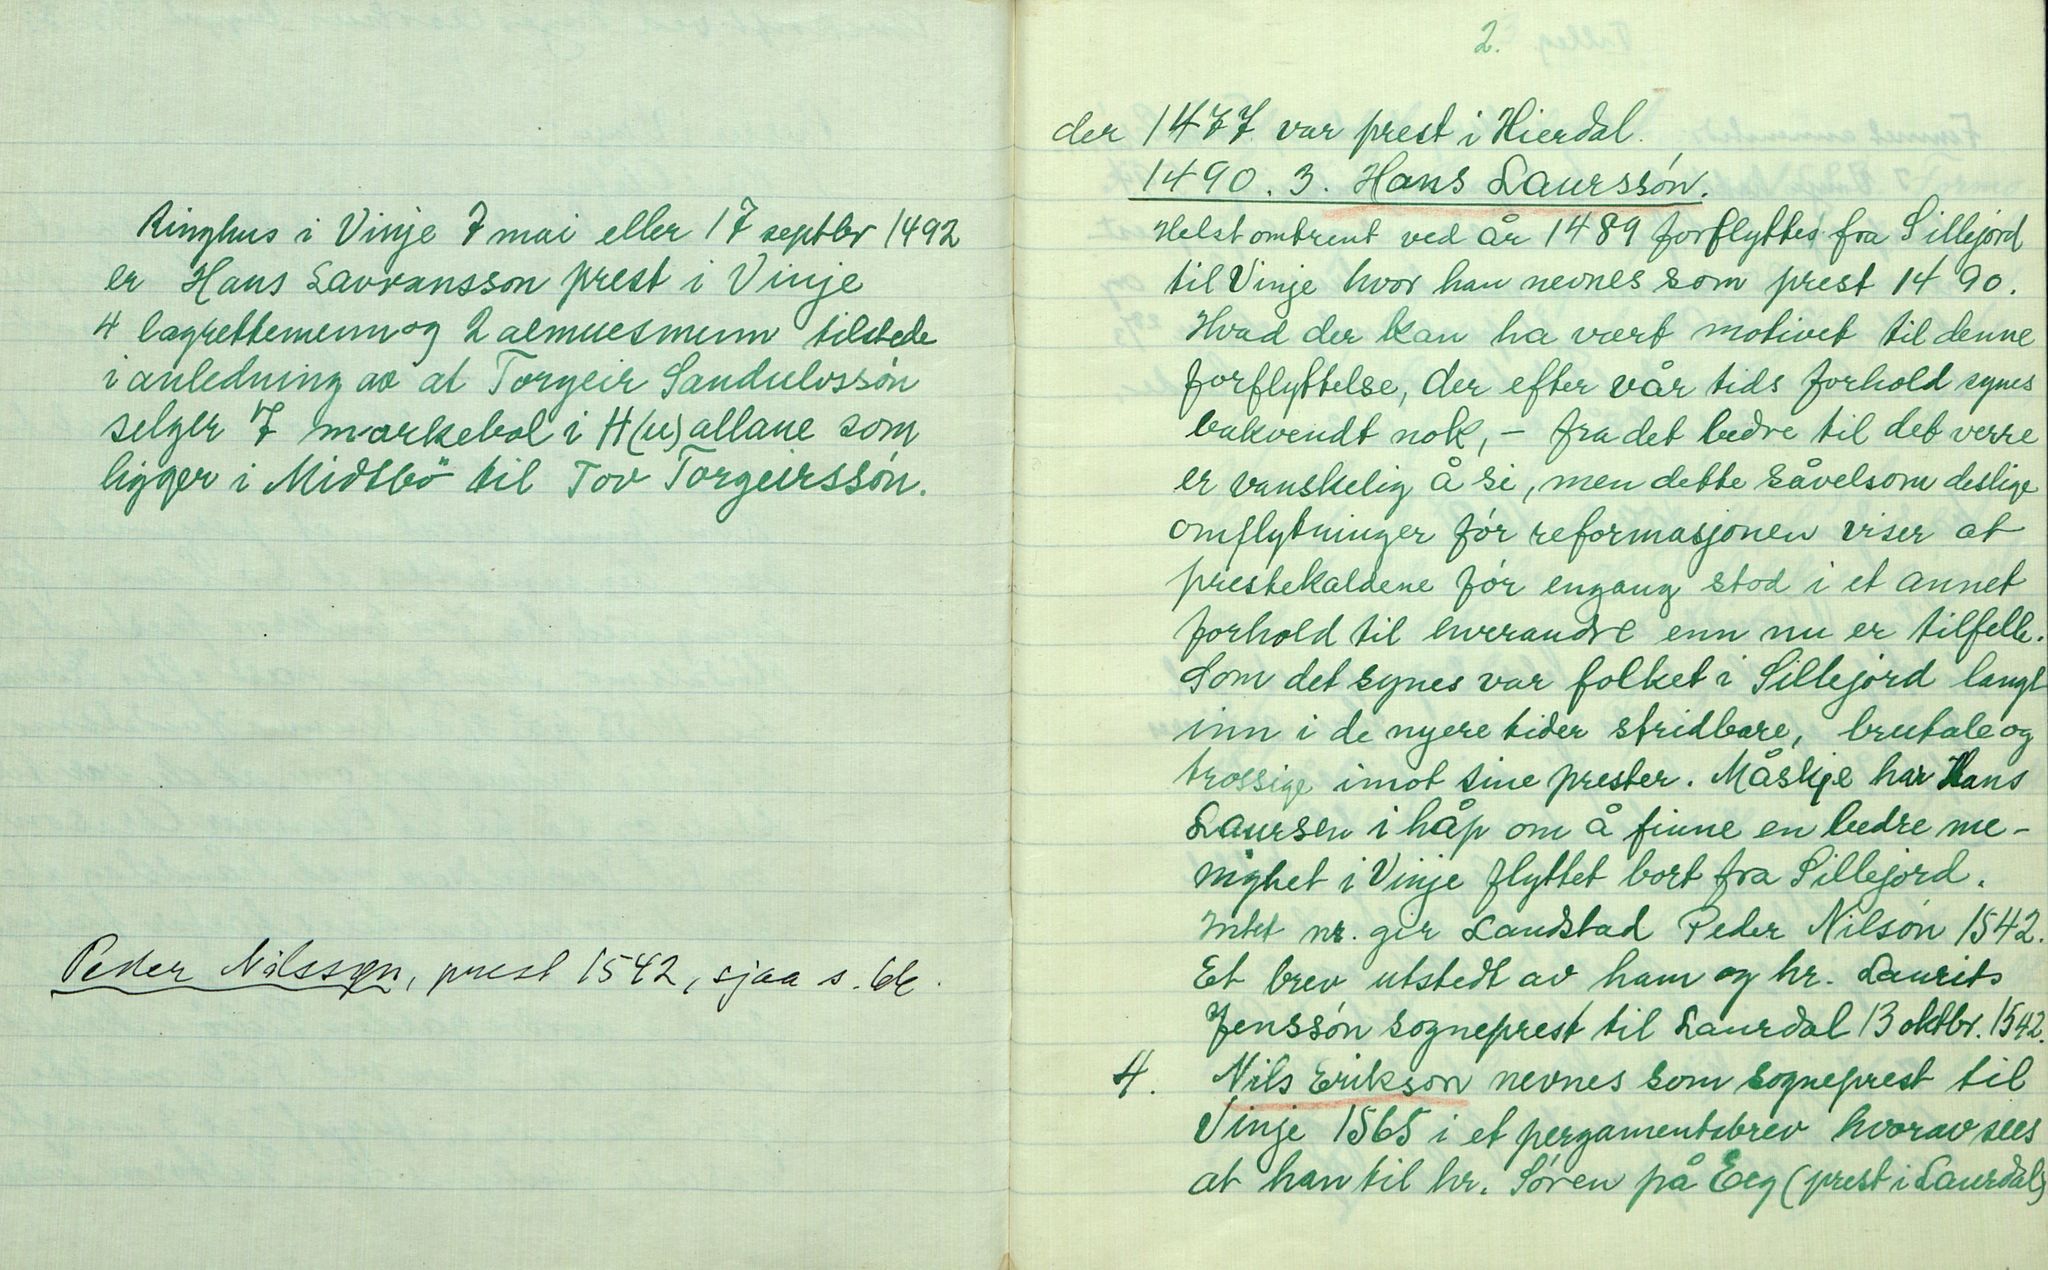 Ringhus i Vinje 7 mai eller 17 septbr 1492
er Hans Lavransson prest i Vinje
4 lagrettemenn og 2 almuesmenn tilstede
i anledning av at Torgeir Sandulvssón
selger 7 markebol i H(u)allane som
ligger i Midtbö til Tov Torgeirssón.
Peder Nilsson, prest 1542, sjaa s.
2.
der 1477 var prest i Hierdal.
1490. 3. Hans Laurssón.
Helst omtrent ved år 1489 forflyttes fra Sillejord
til Vinje hvor han nevnes som prest 1490.
Hvad der kan ha vært motivet til denne
forflyttelse, der efter vår tids forhold synes
bakvendt nok, – fra det bedre til det verre
er vanskelig å si, men dette såvelsom deslige
omflytninger fór reformasjonen viser at
prestekaldene fór engang stod i et annet
forhold til hverandre enn nu er tilfelle.
Som det synes var folket i Sillejord langt
inn i de nyere tider stridbare, brutale og
trossige imot sine prester. Måskje har Hans
Laursen i håp om å finne en bedre me-
nighet i Vinje flyttet bort fra Sillejord.
Intet nr. gir Landstad Peder Nilsón 1542.
Et brev utstedt av ham og hr. Laurits
Jenssón sogneprest til Laurdal 13 oktbr. 1542.
4. Nils Erikson nevnes som sogneprest til
Vinje 1565 i et pergamentsbrev hvorav sees
at han til hr. Sóren på Eeg (prest i Laurdal)